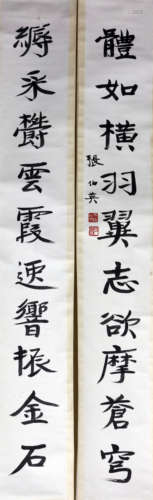 體如橫羽翼志欲摩蒼穹
縟采鬱雲霞逸響振金石
張伯英